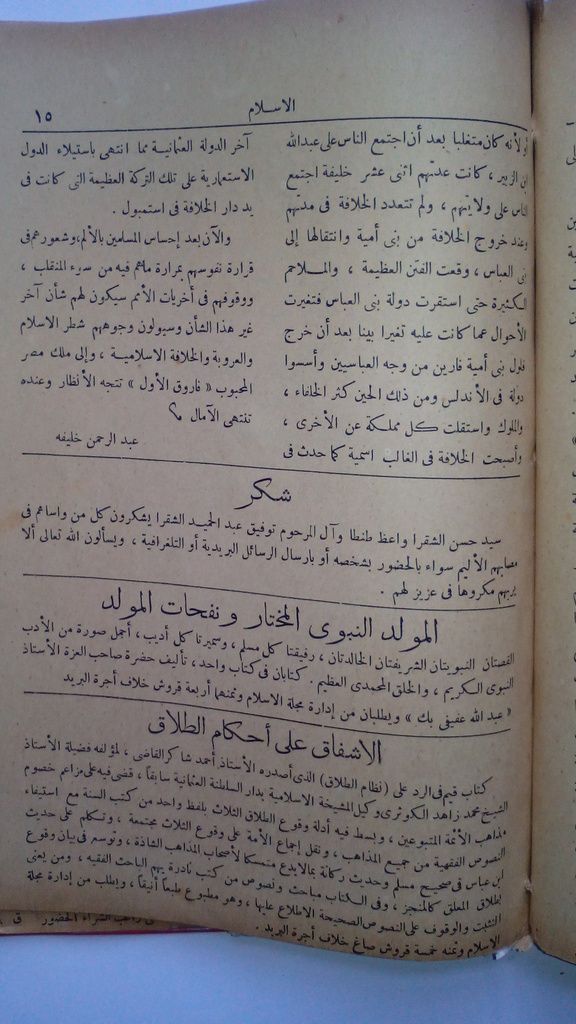 الاسلام
١٥
أو لأنه كان متغلبا بعد أن اجتمع الناس على عبدالله
ابن الزبير ، كانت عدتهم اثنى عشر خليفة اجتمع
الناس على ولايتهم ، ولم تتعدد الخلافة فى مدتهم
وعند خروج الخلافة من بنى أمية وانتقالها إلى
بنى العباس ، وقعت الفتن العظيمة ، والملاحم
الكثيرة حتى استقرت دولة بنى العباس فتغيرت
الأحوال عما كانت عليه تغيرا بينا بعد أن خرج
فلول بنى أمية فارين من وجه العباسيين وأسسوا
دولة فى الأندلس ومن ذلك الحين كثر الخلفاء ،
والملوك واستقلت كل مملكة عن الأخرى ،
وأصبحت الخلافة فى الغالب اسمية كما حدث فى
آخر الدولة العثمانية مما انتهى باستيلاء الدول
الاستعمارية على تلك التركة العظيمة التى كانت فى
يد دار الخلافة فى استمبول .
والآن بعد إحساس المسلمين بالألم وشعورهم فى
قرارة نفوسهم بمرارة ماهم فيه من سوء المنقلب ،
ووقوفهم فى أخريات الأمم سيكون لهم شأن آخر
غير هذا الشأن وسيولون وجوههم شطر الاسلام
والعروبة والخلافة الاسلامية ، وإلى ملك مصر
المحبوب « فاروق الأول » تتجه الأنظار وعنده
تنتهى الآمال
عبد الرحمن خليفه
شكر
سيد حسن الشقرا واعظ طنطا وآل المرحوم توفيق عبد الحميد الشقرا يشكرون كل من واساهم فى
مصابهم الأليم سواء بالحضور بشخصه أو بارسال الرسائل البريدية أو التلغرافية ، ويسألون الله تعالى ألا
يريهم مكروها فى عزيز لهم .
المولد النبوى المختار ونفحات المولد
القصتان النبويتان الشريفتان الخالدتان ، رفيقتا كل مسلم ، وسميرتا كل أديب ، أجمل صورة من الأدب
النبوى الكريم ، والخلق المحمدى العظيم . كتابان فى كتاب واحد ، تأليف حضرة صاحب العزة الأستاذ
« عبد الله عفيفى بك » ويطلبان من إدارة مجلة الاسلام وثمنهما أربعة قروش خلاف أجرة البريد
الاشفاق على أحكام الطلاق
كتاب قيم فى الرد على (نظام الطلاق) الذى أصدره الأستاذ أحمد شاكر القاضى ، لمؤلفه فضيلة الأستاذ
الشيخ محمد زاهد الكوثرى وكيل المشيخة الاسلامية بدار السلطنة العثمانية سابقا ، قضى فيه على مزاعم خصوم
مذاهب الأئمة المتبوعين ، وبسط فيه أدلة وقوع الطلاق الثلاث بلفظ واحد من كتب السنة مع استيفاء
النصوص الفقهية من جميع المذاهب ، ونقل إجماع الأمة على وقوع الثلاث مجتمعة ، وتكلم على حديث
ابن عباس فى صحيح مسلم وحديث ركانة بما لايدع متمسكا لأصحاب المذاهب الشاذة ، وتوسع فى بيان وقوع
الطلاق المعلق كالمنجز ، وفى الكتاب مباحث ونصوص من كتب نادرة يهم الباحث الفقيه ، ومن يعنى
التثبت والوقوف على النصوص الصحيحة الاطلاع عليها ، وهو مطبوع طبعا أنيقا ، ويطلب من إدارة مجلة
الاسلام وثمنه خمسة قروش صاغ خلاف أجرة البريد .